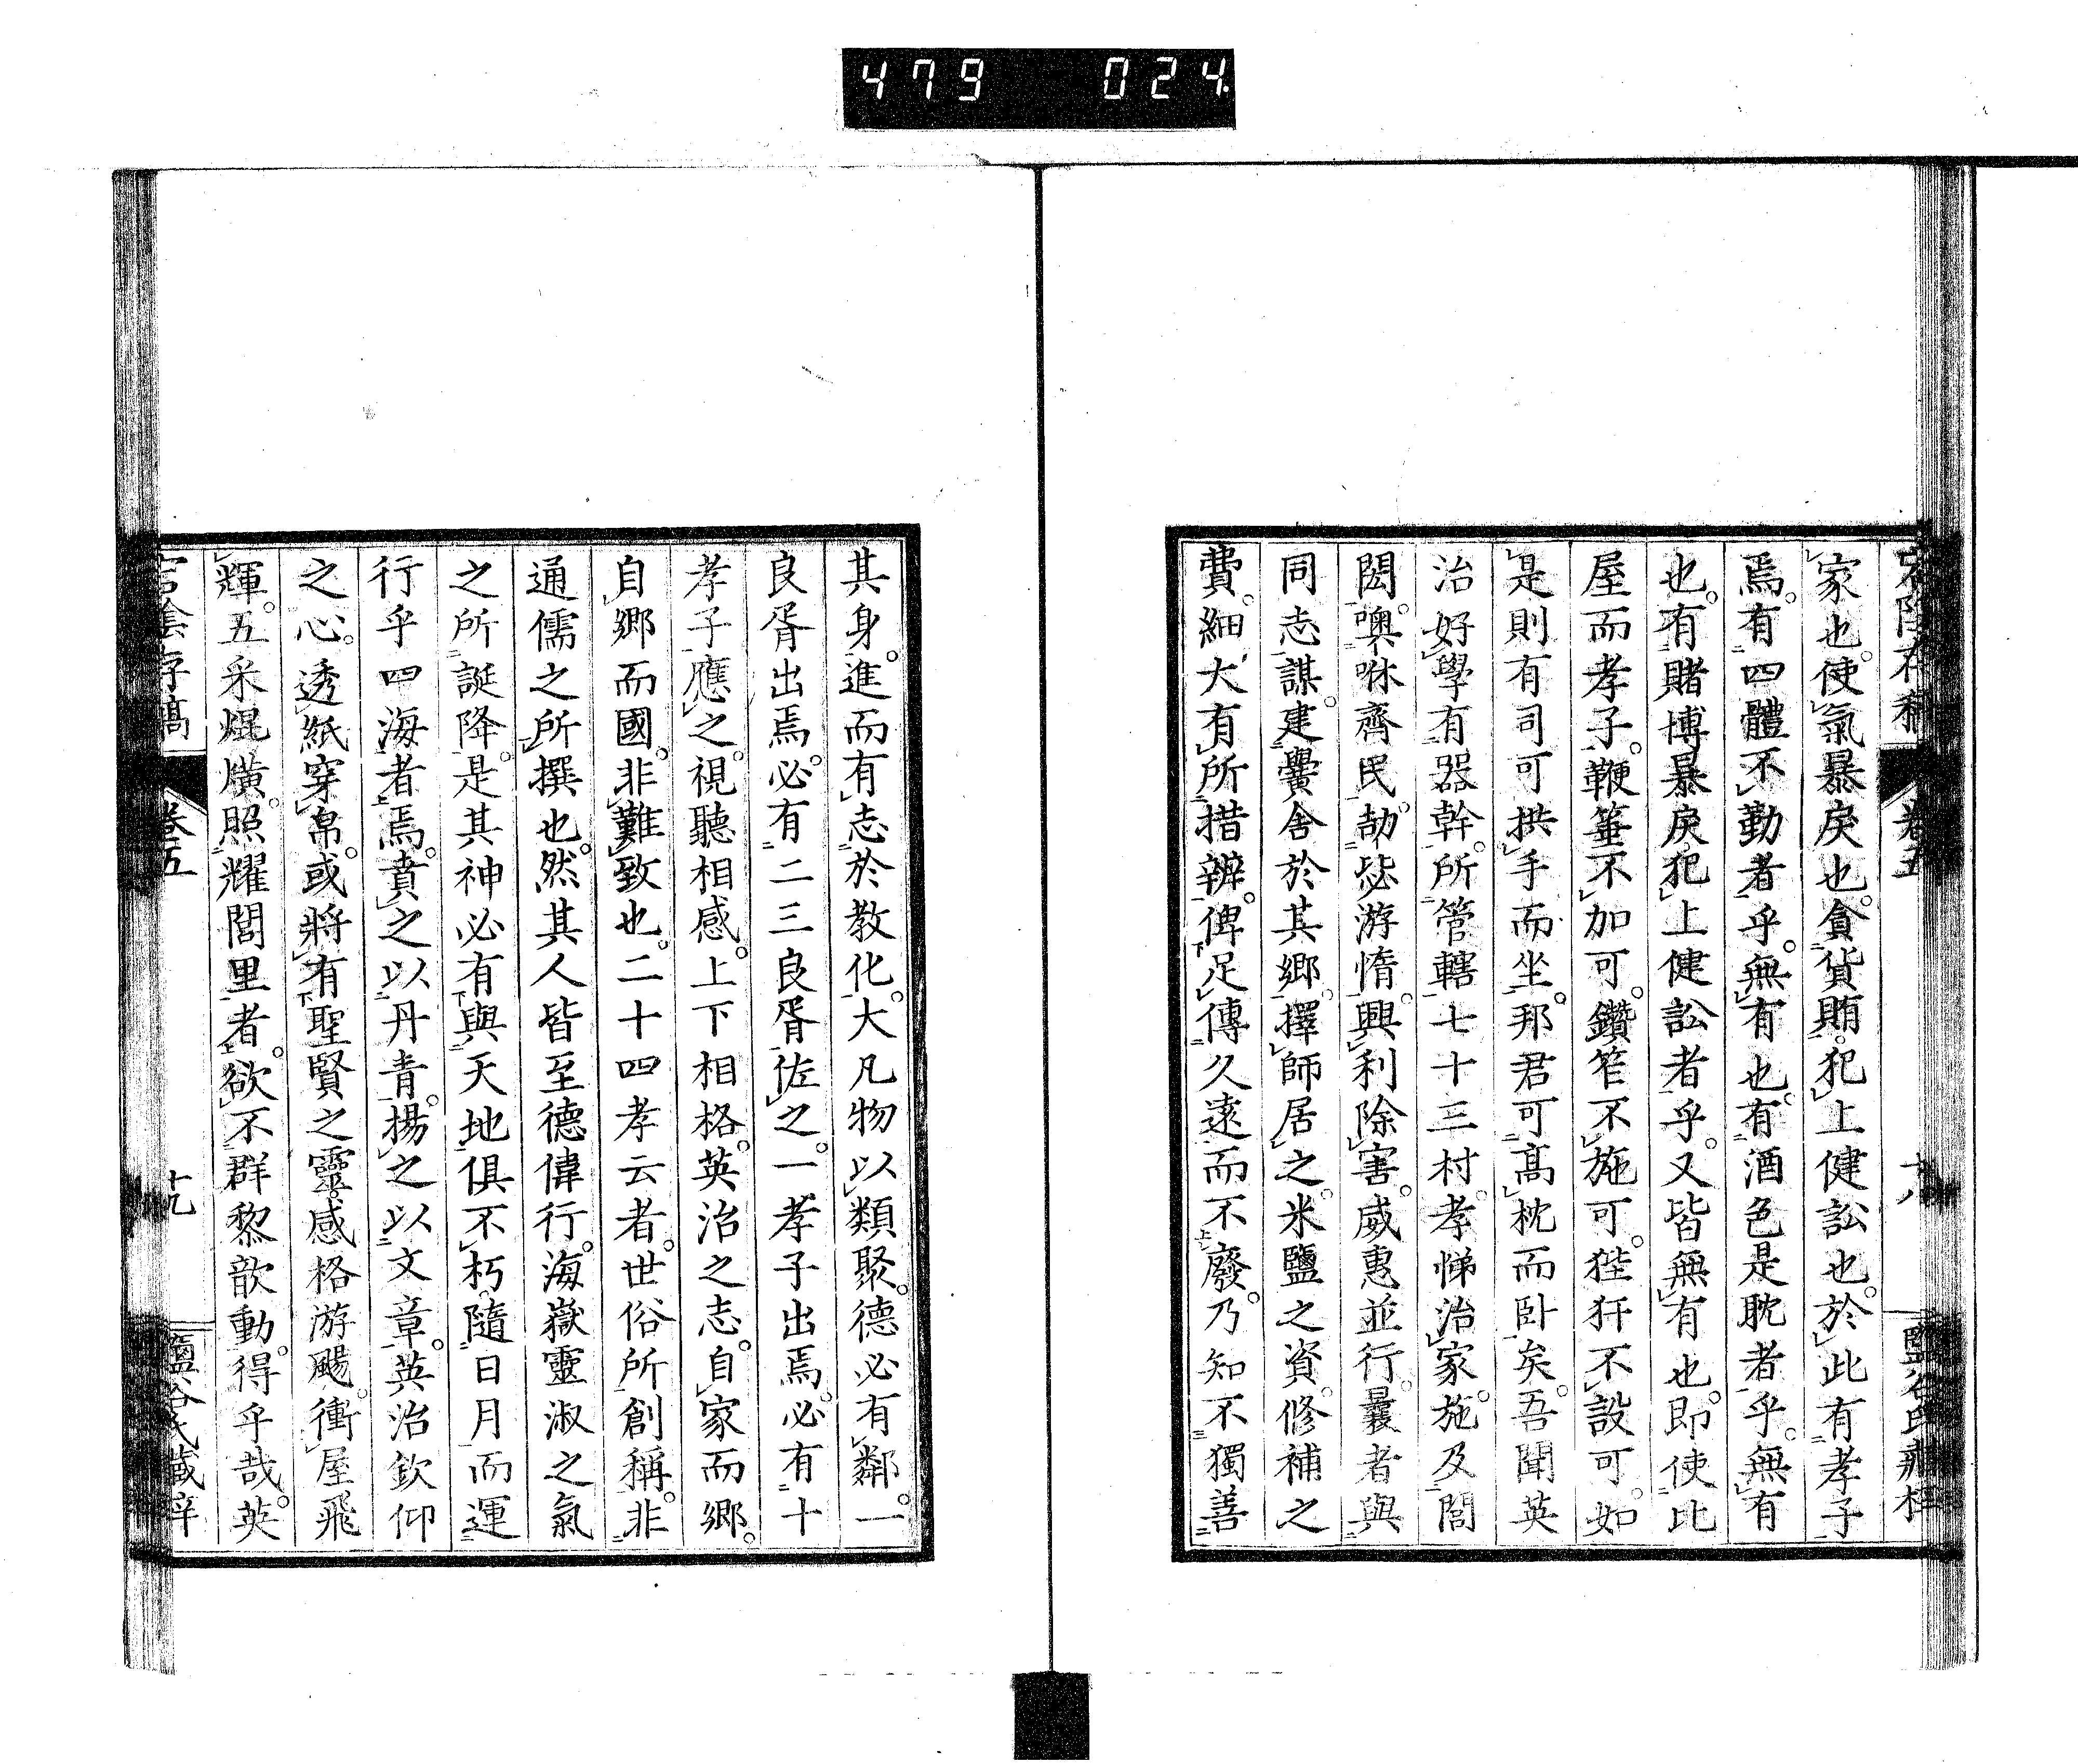 479 024
家也。使氣暴戾也。貪貨賄。犯上健訟也。於此有孝子
焉。有四體不勤者乎。無有也。有酒色是耽者乎。無有
也。有賭博暴戾犯上健訟者乎。又皆無有也。即使比
屋而孝子。鞭箠不加可。鑽笮不施可。狴犴不設可。如
是則有司可拱手而坐。邦君可高枕而臥矣。吾聞英
治好學有器幹。所管轄七十三村。孝悌治家。施及閭
閻。噢咻齊民。劼毖游惰。興利除害。威惠並行。曩者與
同志謀。建黌舍於其鄉。擇師居之。米鹽之資。修補之
費。細大有所措辨。俾足傳久遠而不廢。乃知不獨善
其身。進而有志於教化。大凡物以類聚。德必有鄰。一
良胥出焉。必有二三良胥佐之。一孝子出焉。必有十
孝子應之。視聽相感。上下相格。英治之志。自家而鄉。
自鄉而國。非難致也。二十四孝云者。世俗所創稱。非
通儒之所撰也。然其人皆至德偉行。海嶽靈淑之氣
之所誕降。是其神必有與天地俱不朽。隨日月而運
行乎四海者焉。賁之以丹青。揚之以文章。英治欽仰
之心。透紙穿帛。或將有聖賢之靈。感格游颺。衝屋飛
輝。五采焜熿。照耀閭里者。欲不群黎歆動。得乎哉。英
宕陰存稿
卷五
十九